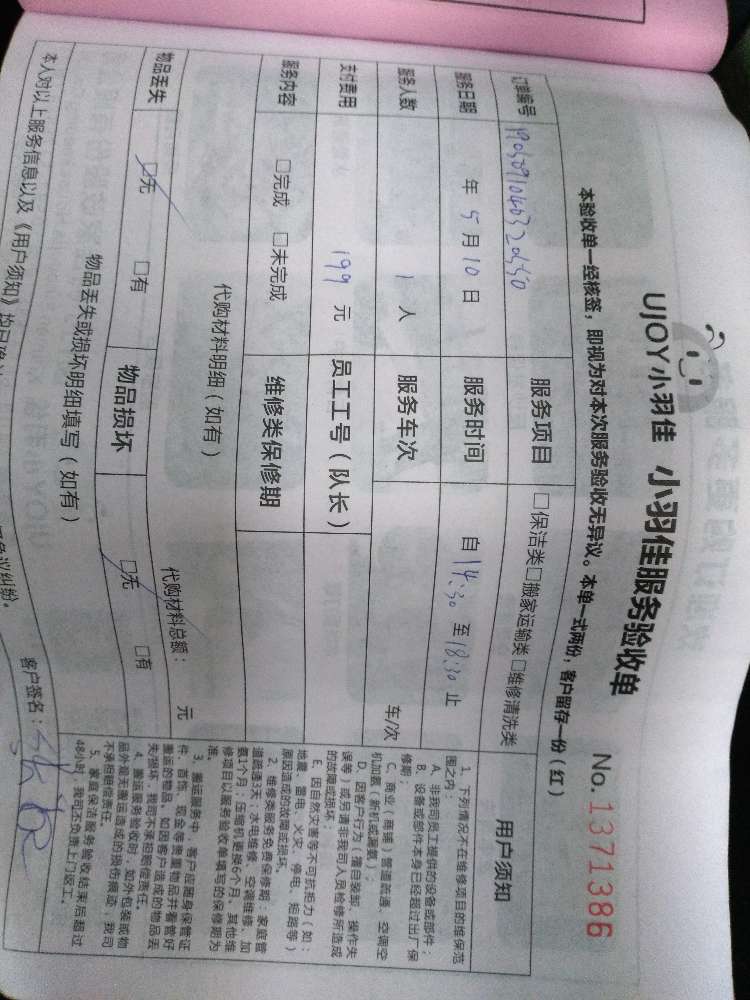 UJOY小羽佳 小羽佳服务验收单
No. 1371386
本验收单一经核签，即视为对本次服务验收无异议。本单一式两份，客户留存一份（红）
订单编号
服务项目 □保洁类□搬家运输类□维修清洗类
服务日期 年 5 月 10 日
服务时间 自 14:30 至 18:30 止
服务人数 1 人
服务车次 车/次
支付费用 199 元
员工工号（队长）
服务内容 □完成 □未完成
维修类保修期
代购材料明细（如有）
代购材料总额： 元
物品丢失 □无 □有
物品损坏 □无 □有
物品丢失或损坏明细填写（如有）
用户须知
1、下列情况不在维修项目的维保范
围之内：
A、非我司员工提供的设备或部件；
B、设备或部件本身已经超过出厂保
修期；
C、商业（商铺）管道疏通、空调空
机加氨（新机或漏氨）；
D、因客户行为（擅自装卸、操作失
误等）或另请非我司人员检修所造成
的故障或损坏；
E、因自然灾害等不可抗拒力（如：
地震、雷电、火灾、停电、短路等）
原因造成的故障或损坏。
2、维修类服务免费保修期：家庭管
道疏通3天；水电维修、空调维修、加
氨1个月；压缩机更换6个月，其他维
修项目以服务验收单填写的保修期为
准。
3、搬运服务中，客户应随身保管证
件、首饰、现金等贵重物品并看管好
搬运的物品，如因客户造成的物品丢
失/损坏，我司不承担赔偿责任。
4、搬运服务验收时，如外包装或物
品外观无搬运造成的损伤痕迹，我司
不承担赔偿责任。
5、家庭保洁服务验收结束后超过
48小时，我司不负责上门返工。
本人对以上服务信息以及《用户须知》均已确认
争议纠纷。
客户签名：